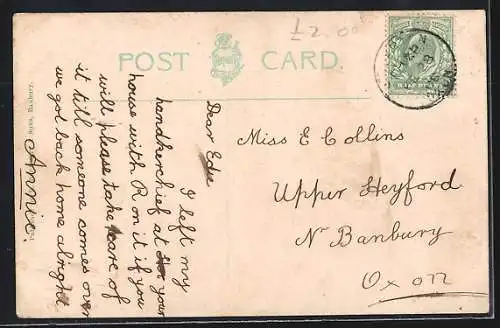 £2.00
POST CARD.
Dear Edie
I left my
handkerchief at your
house with R on it if you
will please take care of
it till someone comes over
we got back home alright
Annie.
Miss E Collins
Upper Heyford
Nr Banbury
Oxon
Sons, Banbury.